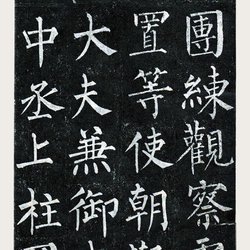 團練觀察
置等使朝
大夫兼御
中丞上柱